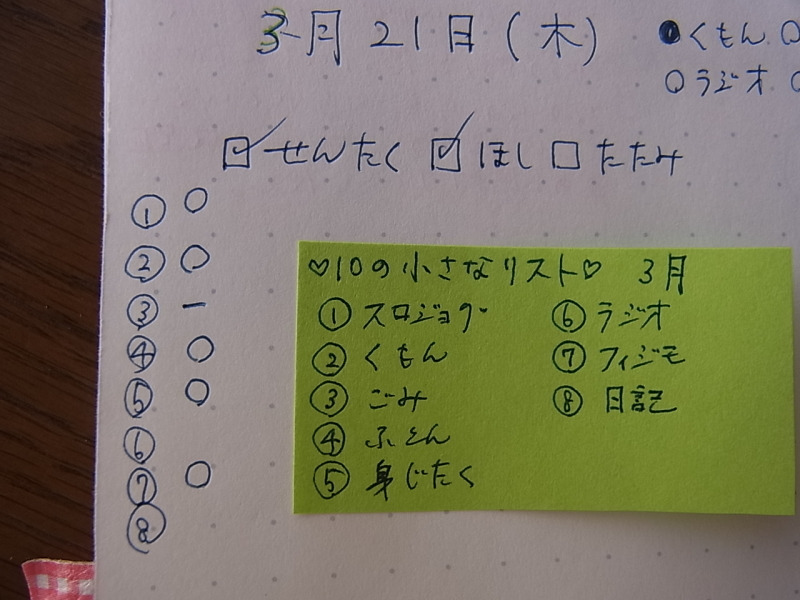 3月21日(木)
●くもん ○
○ラジオ ○
☑せんたく ☑ほし □たたみ
① ○
② ○
③ ー
④ ○
⑤ ○
⑥
⑦ ○
⑧
♡10の小さなリスト♡ 3月
① スロジョグ ⑥ ラジオ
② くもん ⑦ フィジモ
③ ごみ ⑧ 日記
④ ふとん
⑤ 身じたく